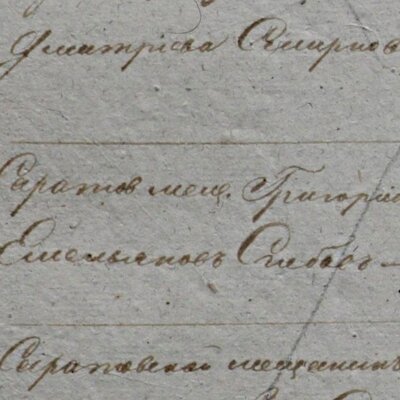 Дмитріева Смирнов
Саратов мещ. Григорій
Емельянов
Саратовской мещанинъ